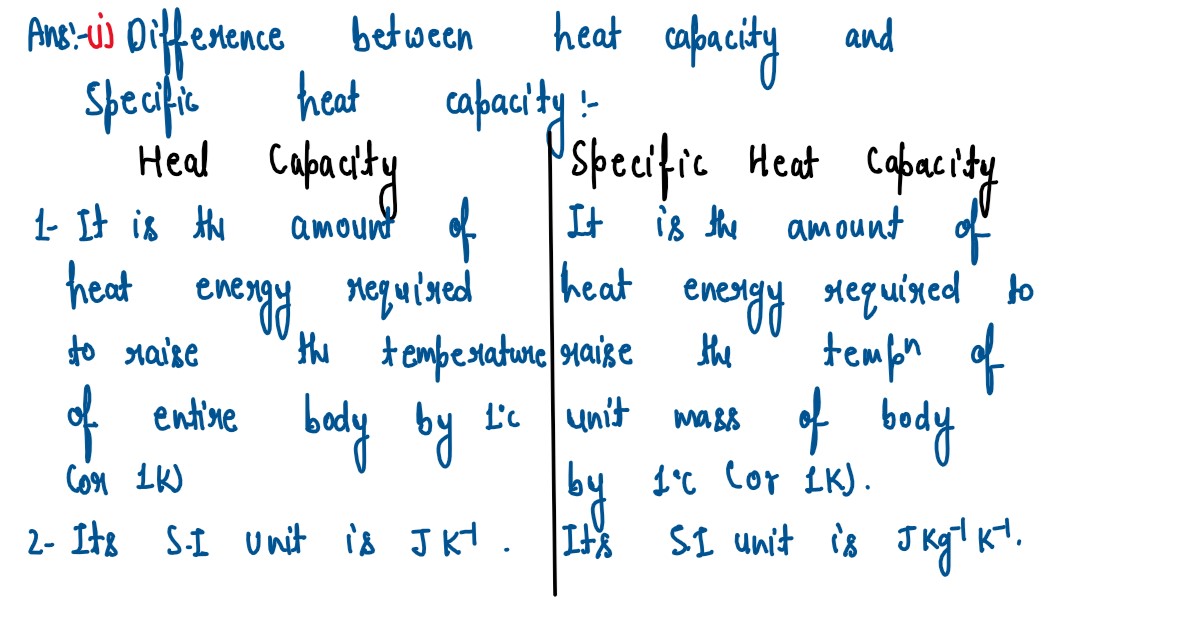 Ans:- (i) Difference between heat capacity and
Specific heat capacity :-
Heal Capacity
1- It is the amount of
heat energy required
to raise the temperature
of entire body by 1°C
(or 1K)
2- Its S.I unit is J K⁻¹ .
Specific Heat Capacity
It is the amount of
heat energy required to
raise the tempn of
unit mass of body
by 1°C (or 1K).
Its S.I unit is J Kg⁻¹ K⁻¹.